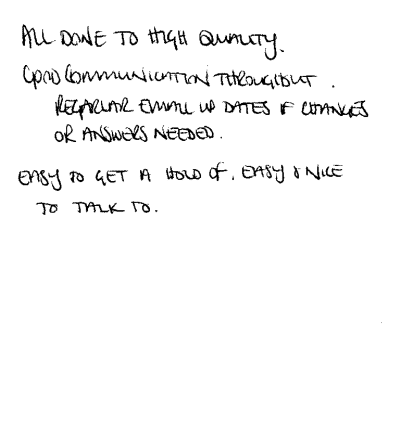 ALL DONE TO HIGH QUALITY.
GOOD COMMUNICATION THROUGHOUT.
REGARLAR EMAIL UP DATES IF CHANGES
OR ANSWERS NEEDED.
EASY TO GET A HOLD OF. EASY & NICE
TO TALK TO.